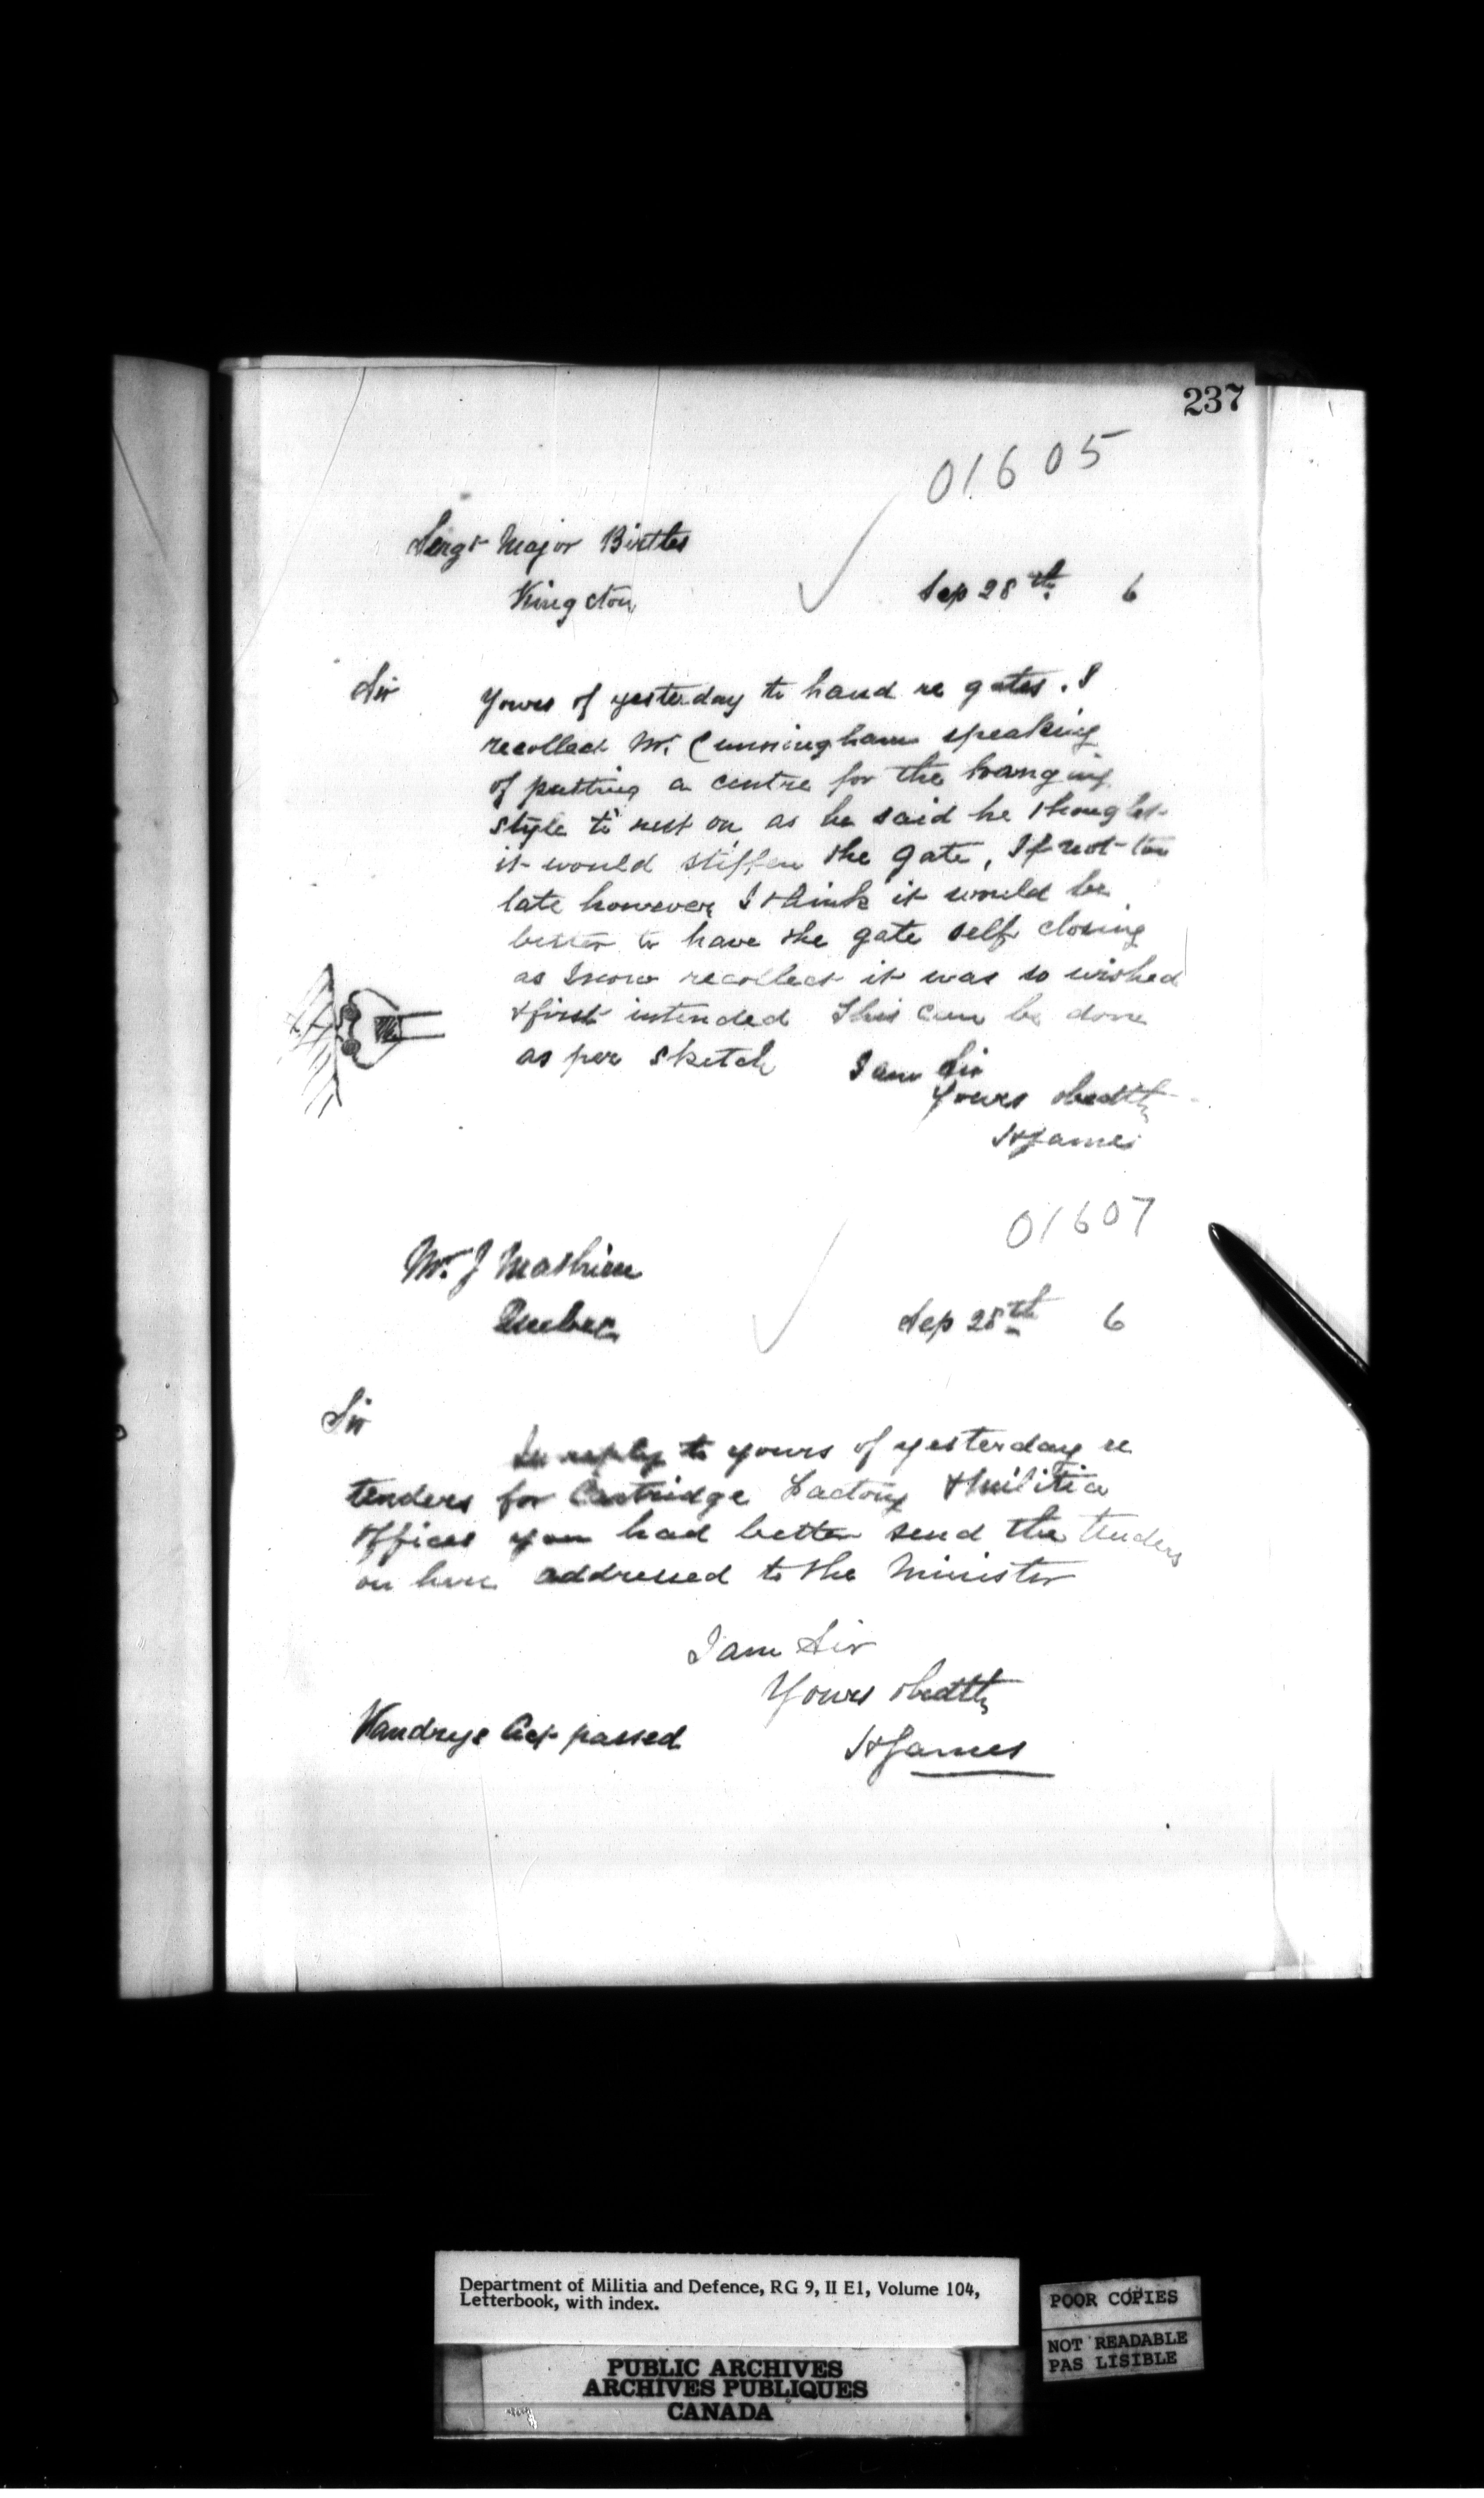 237
01605
Sergt Major Birtles
Kingston
Sep 28th 6
Sir
Yours of yesterday to hand re gates. I
recollect Mr. Cunningham speaking
of putting a centre for the hanging
style to rest on, as he said he thought
it would stiffen the gate, If not too
late however I think it would be
better to have the gate self closing
as I now recollect it was so wished
& first intended This can be done
as per sketch
I am Sir
Yours obedtly
H James
01607
Mr. J Mathieu
Quebec
Sep 28th 6
Sir
In reply to yours of yesterday re
tenders for Cartridge Factory & Militia
Offices you had better send the tenders
on here addressed to the Minister
I am Sir
Yours obedtly
Vandrys Act passed
H James
Department of Militia and Defence, RG 9, II E1, Volume 104,
Letterbook, with index.
POOR COPIES
NOT READABLE
PAS LISIBLE
PUBLIC ARCHIVES
ARCHIVES PUBLIQUES
CANADA